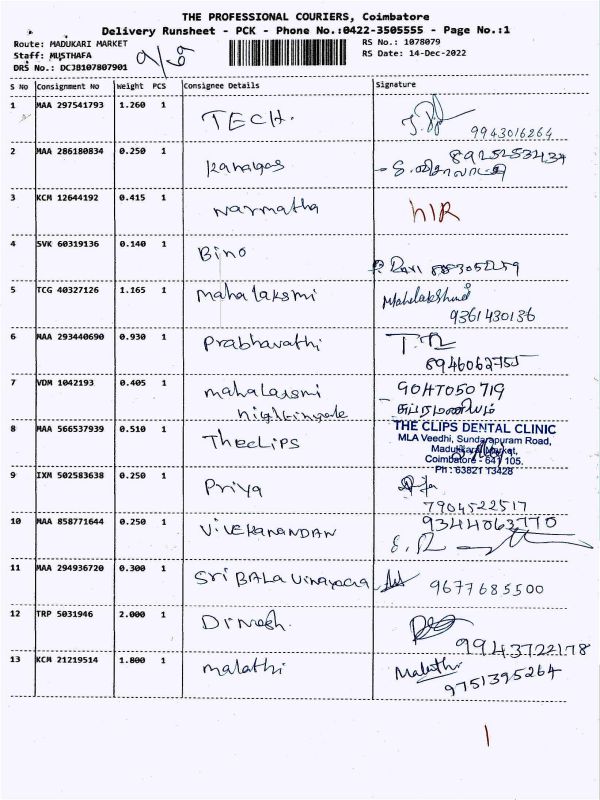 THE PROFESSIONAL COURIERS, Coimbatore
Delivery Runsheet - PCK - Phone No.:0422-3505555 - Page No.:1
Route: MADUKARI MARKET
Staff: MUSTHAFA
DRS No.: DCJB107807901
RS No.: 1078079
RS Date: 14-Dec-2022
S No Consignment No Weight PCS Consignee Details Signature
1 MAA 297541793 1.260 1 TECH.
9943016264
2 MAA 286180834 0.250 1 Kanagas
8925253434
3 KCM 12644192 0.415 1 Narmatha NIR
4 SVK 60319136 0.140 1 Bino
Ravi
5 TCG 40327126 1.165 1 mahalaksmi Mahalakshmi
9361430136
6 MAA 293440690 0.930 1 Prabhavathi
8946062755
7 VDM 1042193 0.405 1 mahalaxmi
nightingale
சுப்ரமணியம்
8 MAA 566537939 0.510 1 Theclips
THE CLIPS DENTAL CLINIC
MLA Veedhi, Sundarapuram Road,
Madukkarai Market,
Coimbatore - 641 105.
Ph : 63821 13428
9 IXM 502583638 0.250 1 Priya
7904522517
10 MAA 858771644 0.250 1 VIVEKANANDAN
9344063770
11 MAA 294936720 0.300 1 Sri BALA Vinayaga 9677685500
12 TRP 5031946 2.000 1 Dinesh.
9943722178
13 KCM 21219514 1.800 1 malathi Malathi
9751395264